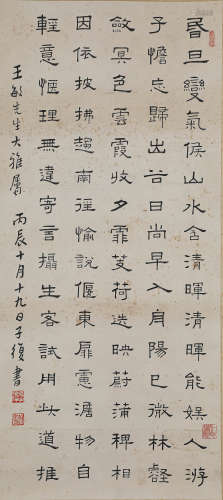 昏旦變氣候山水含清暉清暉能娛人游
子憺忘歸出谷日尚早入舟陽已微林壑
斂冥色雲霞收夕霏芰荷迭映蔚蒲稗相
因依披拂趨南徑愉說偃東扉慮澹物自
輕意愜理無違寄言攝生客試用此道推
王敏先生大雅屬 丙辰十月十九日子書